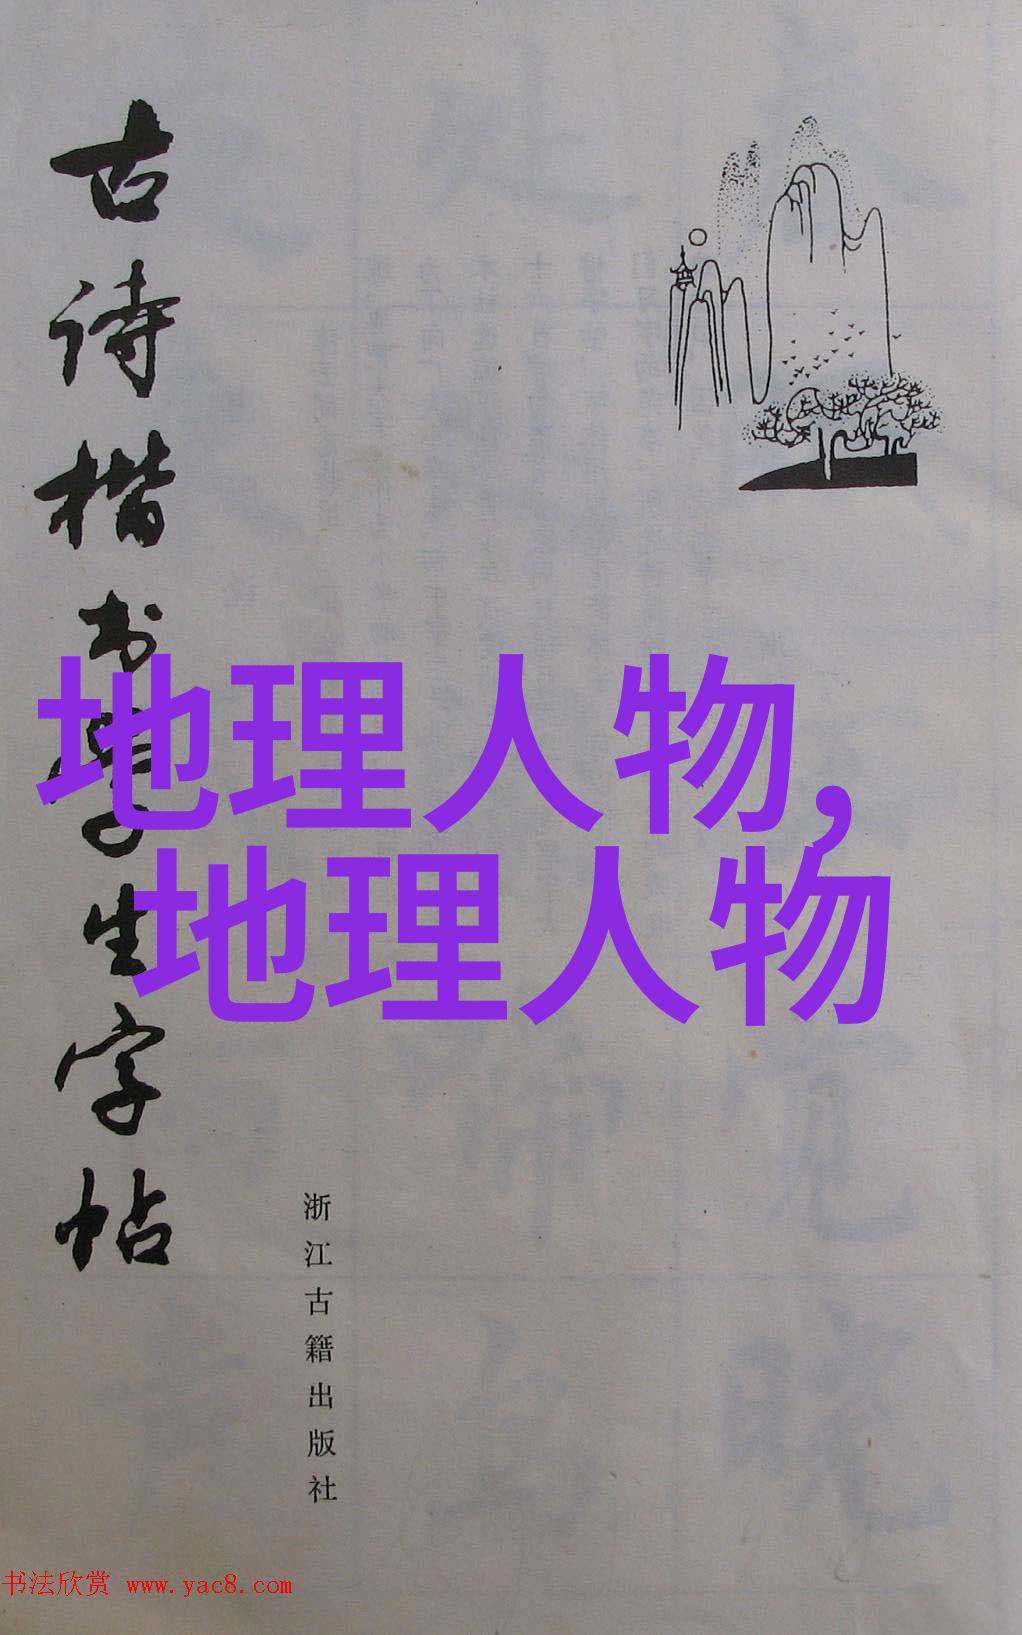 古诗楷书学生字帖
地理人物,
地理人物
浙江古籍出版社
书法欣赏 www.yac8.com